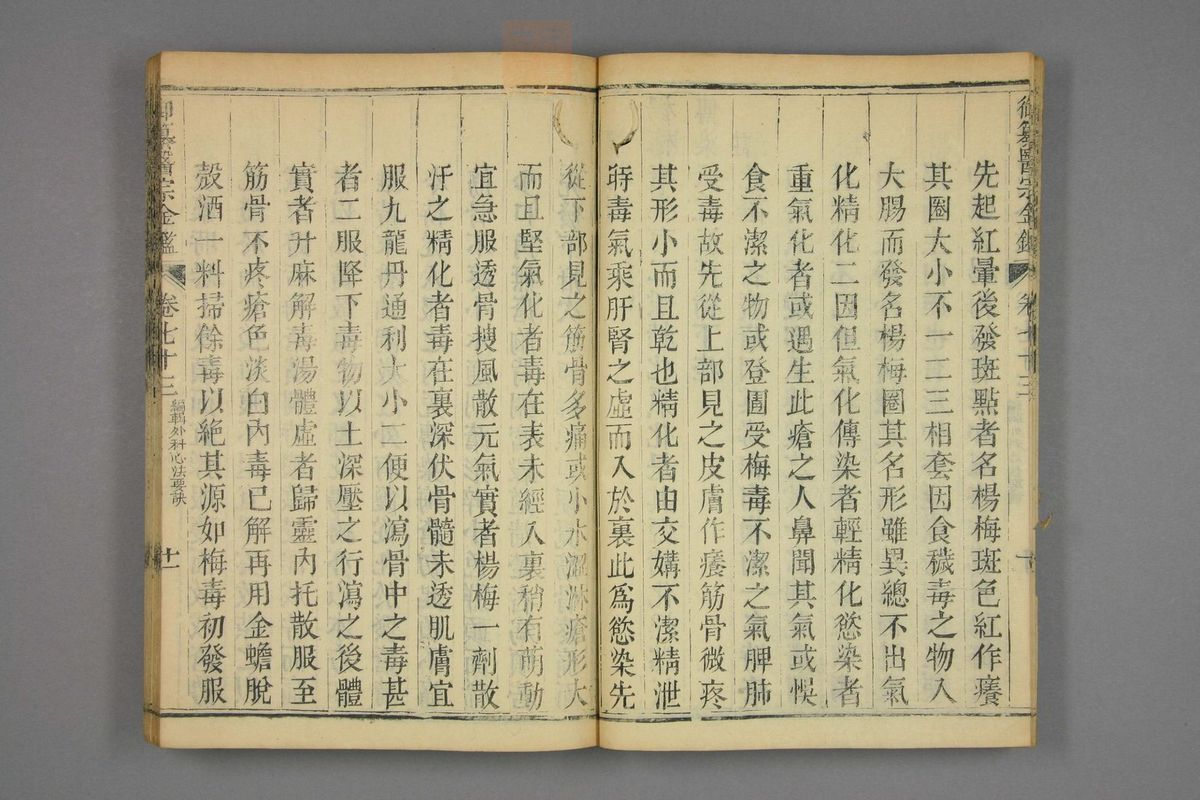 御纂醫宗金鑑 卷七十三
先起紅暈後發斑點者名楊梅斑色紅作癢
其圈大小不一二三相套因食穢毒之物入
大腸而發名楊梅圈其名形雖異總不出氣
化精化二因但氣化傳染者輕精化慾染者
重氣化者或遇生此瘡之人鼻聞其氣或悞
食不潔之物或登圊受梅毒不潔之氣脾肺
受毒故先從上部見之皮膚作癢筋骨微疼
其形小而且乾也精化者由交媾不潔精泄
時毒氣乘肝腎之虛而入於裏此為慾染先
從下部見之筋骨多痛或小水澀淋瘡形大
而且堅氣化者毒在表未經入裏稍有萌動
宜急服透骨搜風散元氣實者楊梅一劑散
汗之精化者毒在裏深伏骨髓未透肌膚宜
服九龍丹通利大小二便以瀉骨中之毒甚
者二服降下毒物以土深壓之行瀉之後體
實者升麻解毒湯體虛者歸靈內托散服至
筋骨不疼瘡色淡白內毒已解再用金蟾脫
殼酒一料掃餘毒以絕其源如梅毒初發服
御纂醫宗金鑑 卷七十三 編輯外科心法要訣 十一